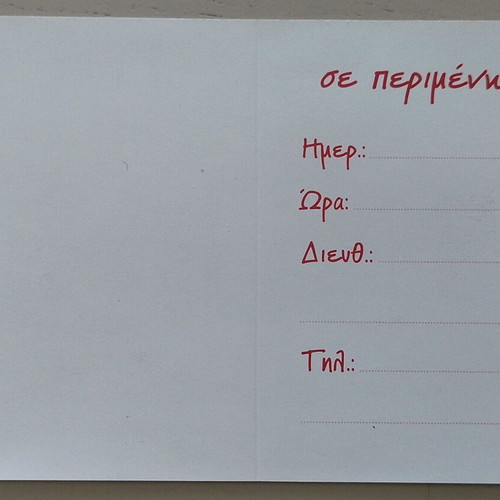 σε περιμένω
Ημερ.:
Ώρα:
Διευθ.:
Τηλ.: